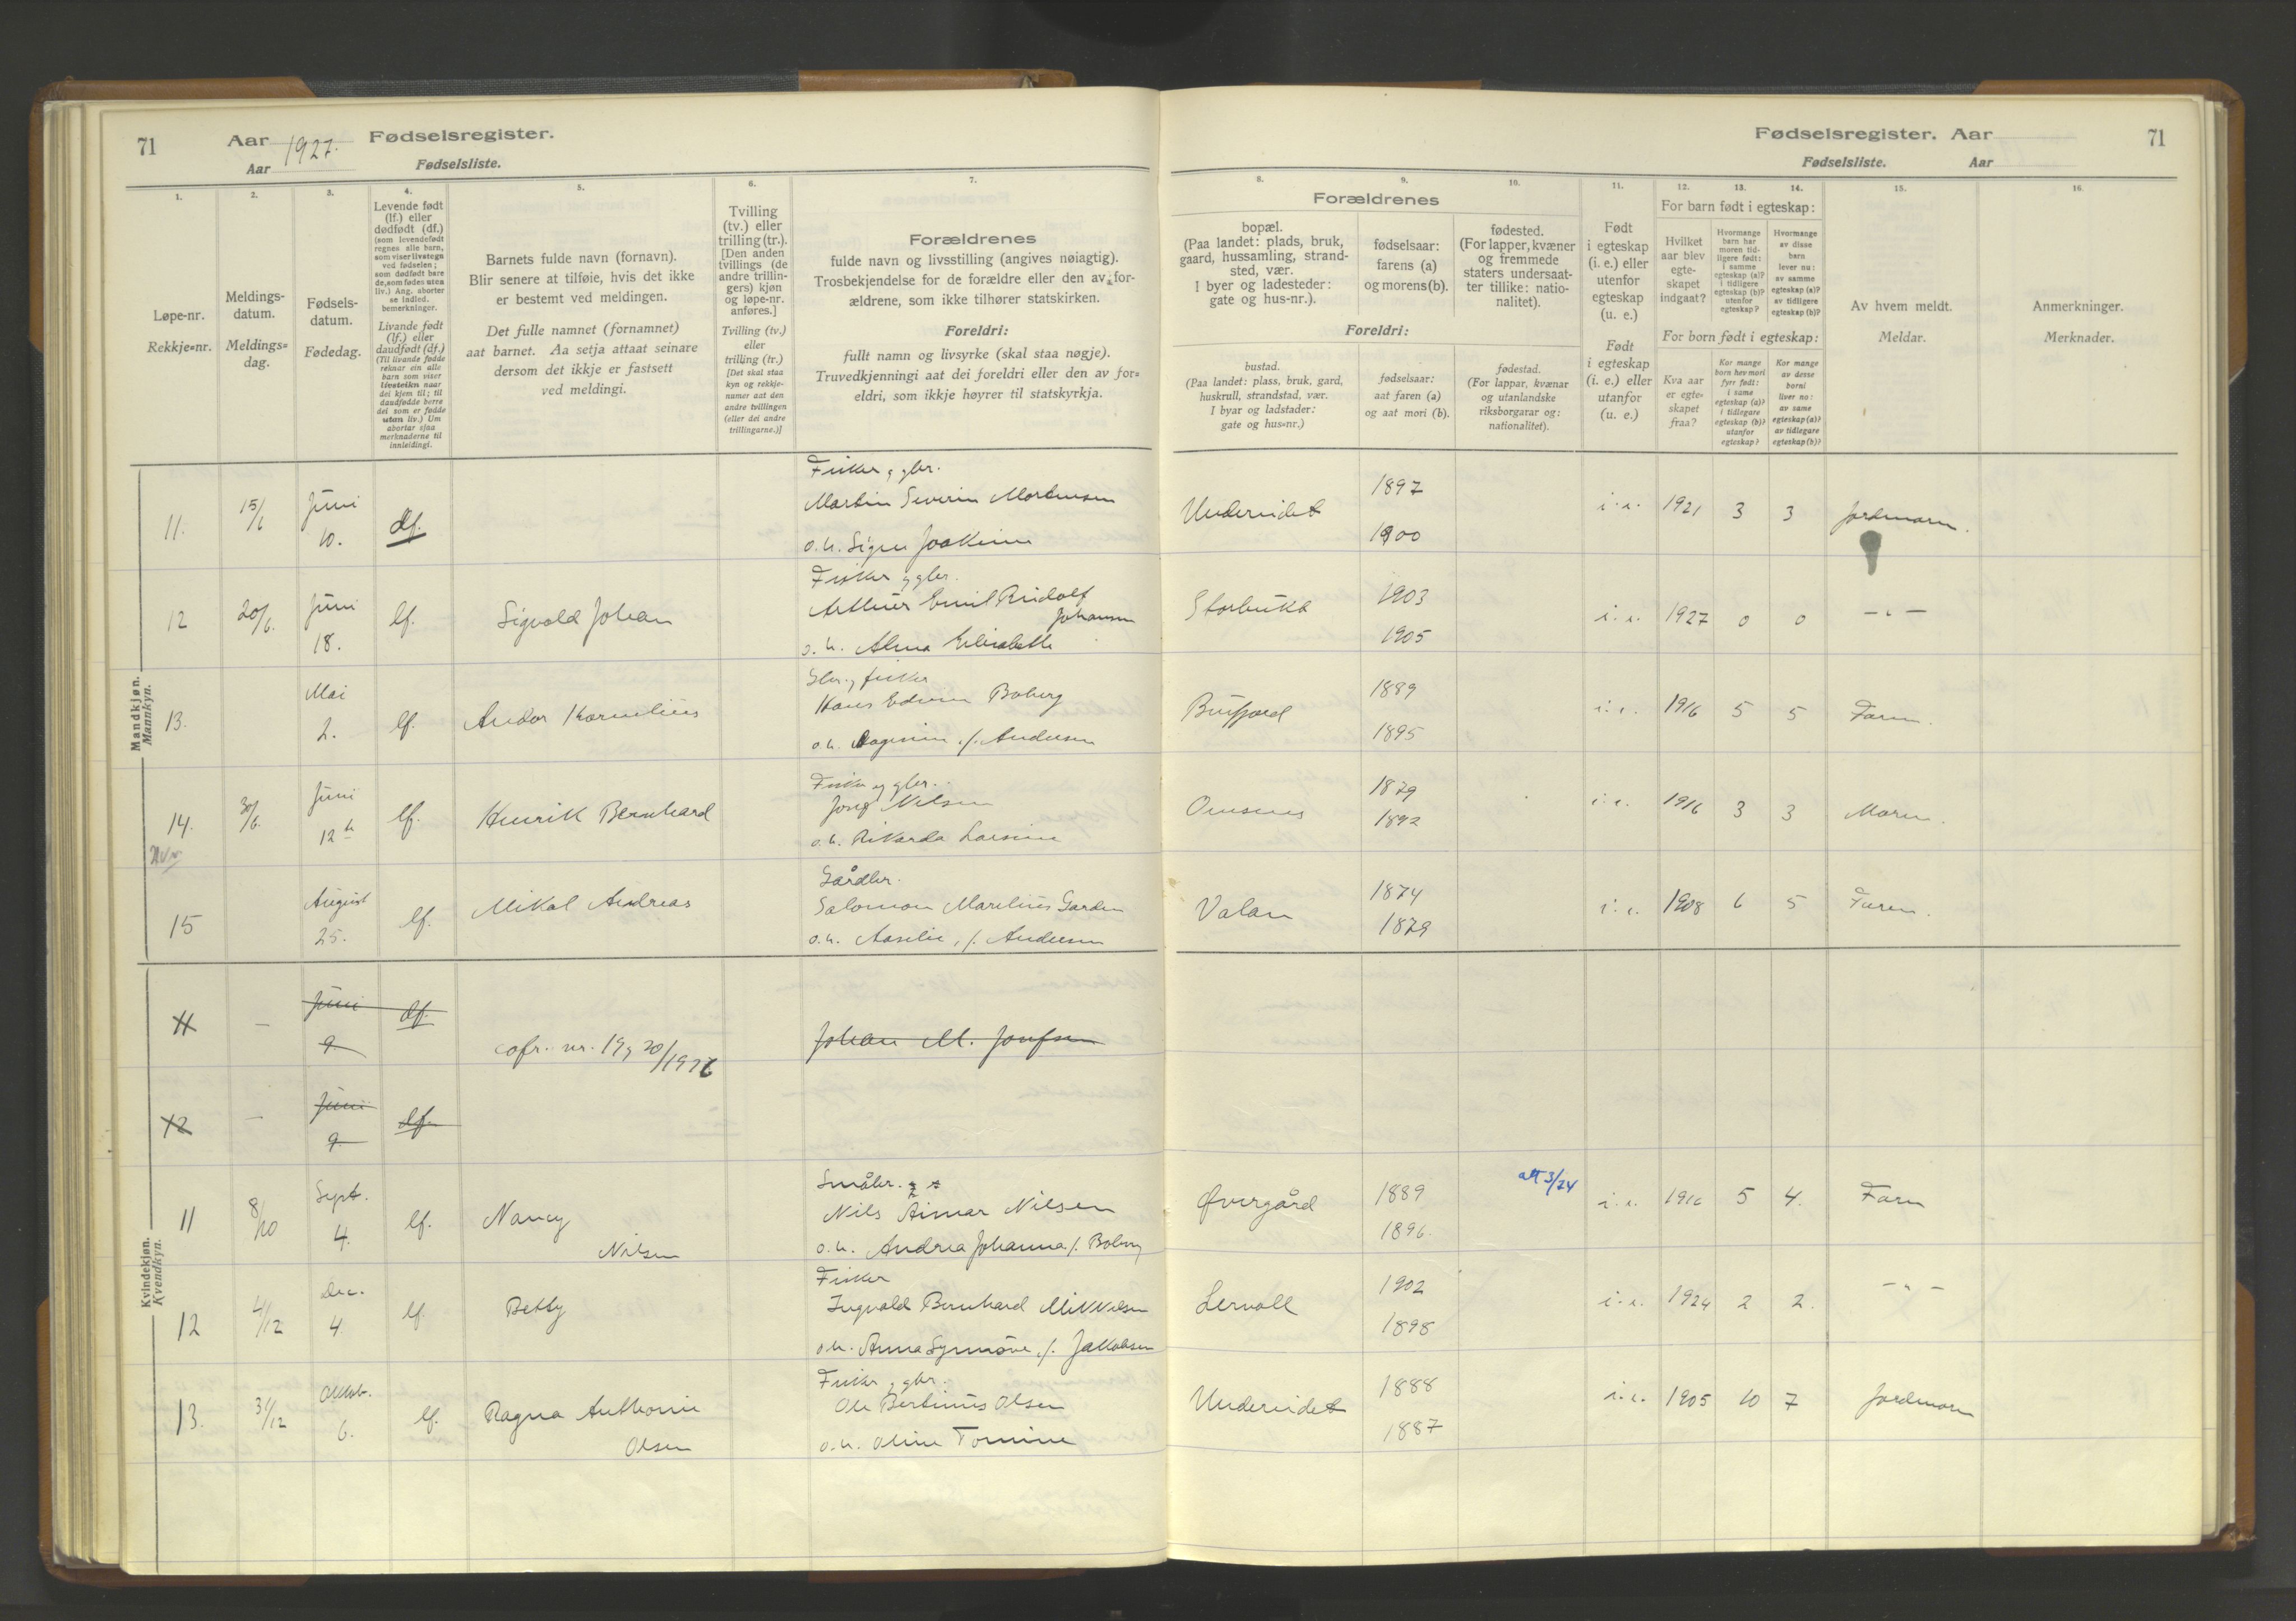 71
Aar 1927. Fødselsregister.
Aar Fødselsliste.
1.
2.
3.
4.
5.
6.
7.
Løpe-nr.
Rekkje=nr.
Meldings-
datum.
Meldings=
dag.
Fødsels-
datum.
Fødedag.
Levende født
(lf.) eller
dødfødt (df.)
(som levendefødt
regnes alle barn,
som viser livstegn
ved fødselen;
som dødfødt bare
de, som fødes uten
liv.) Ang. aborter
se indled.
bemerkninger.
Livande født
(lf.) eller
daudfødt (df.)
(Til livande fødde
reknar ein alle
barn som viser
livsteikn naar
dei kjem til; til
daudfødde berre
dei som er fødde
utan liv.) Um
abortar sjaa
merknaderne til
innleidingi.
Barnets fulde navn (fornavn).
Blir senere at tilføie, hvis det ikke
er bestemt ved meldingen.
Det fulle namnet (fornamnet)
aat barnet. Aa setja attaat seinare
dersom det ikkje er fastsett
ved meldingi.
Tvilling
(tv.) eller
trilling (tr.).
[Den anden
tvillings (de
andre trillin-
gers) kjøn
og løpe-nr.
anføres.]
Tvilling (tv.)
eller
trilling (tr.)
[Det skal staa
kyn og rekkje-
numer aat den
andre tvillingen
(eller dei andre
trillingarne.)]
Forældrenes
fulde navn og livsstilling (angives nøiagtig).
Trosbekjendelse for de forældre eller den av for-
ældrene, som ikke tilhører statskirken.
Foreldri:
fullt namn og livsyrke (skal staa nøgje).
Truvedkjenningi aat dei foreldri eller den av for=
eldri, som ikkje høyrer til statskyrkja.
Mandkjøn.
Mannkyn.
11. 15/6 Juni 10. df.
Fisker og gbr.
Martin Severin Mortensen
o. h. Signe Joakime
12 20/6. Juni 18. lf. Sigvald Johan
Fisker og gbr.
Arthur Emil Rudolf
Johansen
o. h. Alma Elisabeth
13. Mai 2. lf. Andor Kornelius
Gbr. og fisker
Hans Edvin Boberg
o. h. Dagmin f. Andersen
14. 30/6. Juni 12te lf. Henrik Bernhard
Fisker og gbr.
Josef Nilsen
o. h. Rikarda Larsine
15 August 25. lf. Mikal Andreas
Gårdbr.
Salomon Marelius Garden
o. h. Aaselie, f. Andersen
Kvindekjøn.
Kvendkyn.
11 — Juni 9. df. Johan M. Josefsen
cofr. nr. 19 og 20/1926
12 — Juni 9. df.
11 8/10 Sept. 4. lf. Nancy
Nilsen
Småbr.
Nils Aimar Nilsen
o. h. Andrea Johanna f. Boberg
12 4/12 Dec. 4. lf. Betty
Fisker
Ingvald Bernhard Mikkelsen
o h. Anna Synnøve, f. Jakobsen
13. 31/12 Oktob. 6. lf. Ragna Anthonie
Olsen
Fisker og gbr.
Ole Bertinus Olsen
o. h. Oline Tomine
Fødselsregister. Aar
71
Fødselsliste. Aar
8.
9.
10.
11.
12.
13.
14.
15.
16.
Forældrenes
bopæl.
(Paa landet: plads, bruk,
gaard, hussamling, strand-
sted, vær.
I byer og ladesteder:
gate og hus-nr.).
fødselsaar:
farens (a)
og morens (b).
fødested.
(For lapper, kvæner
og fremmede
staters undersaat-
ter tillike: natio-
nalitet).
Foreldri:
bustad.
(Paa landet: plass, bruk, gard,
huskrull, strandstad, vær.
I byar og ladstader:
gate og hus=nr.)
fødselsaar:
aat faren (a)
og aat mori (b).
fødestad.
(For lappar, kvænar
og utanlandske
riksborgarar og:
nationalitet).
Født
i egteskap
(i. e.) eller
utenfor
egteskap
(u. e.)
Født
i egteskap
(i. e.) eller
utanfor
(u. e.)
For barn født i egteskap:
Hvilket
aar blev
egte-
skapet
indgaat?
Hvormange
barn har
moren tid-
ligere født:
i samme
egteskap (a)?
i tidligere
egteskap (b)?
utenfor
egteskap?
Hvormange
av disse
barn
lever nu:
av samme
egteskap (a)?
av tidligere
egteskap (b)?
For born født i egteskap:
Kva aar
er egte-
skapet
fraa?
Kor mange
born hev mori
fyrr født:
i same
egteskap (a)?
i tidlegare
egteskap (b)?
utanfor
egteskap?
Kor mange
av desse
borni
liver no:
av same
egteskap (a)?
av tidlegare
egteskap (b)?
Av hvem meldt.
Meldar.
Anmerkninger.
Merknader.
Undereidet 1897 1900 i. e. 1921 3 3 Jordmoren.
Storbukt 1903 1905 i. e. 1927 0 0 — " —
Burfjord 1889 1895 i. e. 1916 5 5 Faren.
1879 1892 i. e. 1916 3 3 Moren.
Valan 1874 1879 i. e. 1908 6 5 Faren.
Øvergård 1889 1896. att 3/24 i. e. 1916 5 4. Faren
Lervoll 1902 1898 i. e. 1924 2 2. — " —
Undereidet 1888 1887 i. e. 1905 10 7 Jordmoren